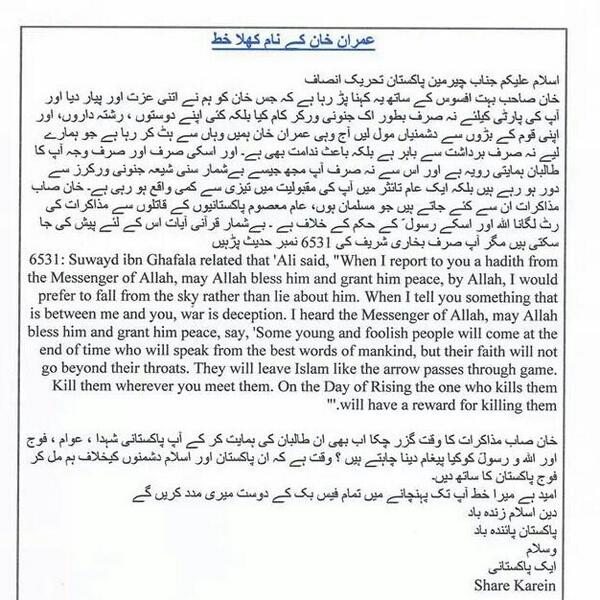 عمران خان کے نام کھلا خط
اسلام علیکم جناب چیرمین پاکستان تحریک انصاف
خان صاحب بہت افسوس کے ساتھ یہ کہنا پڑ رہا ہے کہ جس خان کو ہم نے اتنی عزت اور پیار دیا اور
آپ کی پارٹی کیلئے نہ صرف بطور اک جنونی ورکر کام کیا بلکہ کئی اپنے دوستوں ، رشتہ داروں، اور
اپنی قوم کے بڑوں سے دشمنیاں مول لیں آج وہی عمران خان ہمیں وہاں سے ہٹ کر رہا ہے جو ہمارے
لیے نہ صرف برداشت سے باہر ہے بلکہ باعث ندامت بھی ہے۔ اور اسکی صرف اور صرف وجہ آپ کا
طالبان ہمایتی رویہ ہے اور اس سے نہ صرف آپ مجھ جیسے بےشمار سنی شیعہ جنونی ورکرز سے
دور ہو رہے ہیں بلکہ ایک عام تائثر میں آپ کی مقبولیت میں تیزی سے کمی واقع ہو رہی ہے۔ خان صاب
مذاکرات ان سے کئے جاتے ہیں جو مسلمان ہوں، عام معصوم پاکستانیوں کے قاتلوں سے مذاکرات کی
رٹ لگانا اللہ اور اسکے رسولؐ کے حکم کے خلاف ہے ۔ بےشمار قرآنی آیات اس کے لئے پیش کی جا
سکتی ہیں مگر آپ صرف بخاری شریف کی 6531 نمبر حدیث پڑہیں
6531: Suwayd ibn Ghafala related that 'Ali said, "When I report to you a hadith from
the Messenger of Allah, may Allah bless him and grant him peace, by Allah, I would
prefer to fall from the sky rather than lie about him. When I tell you something that
is between me and you, war is deception. I heard the Messenger of Allah, may Allah
bless him and grant him peace, say, 'Some young and foolish people will come at the
end of time who will speak from the best words of mankind, but their faith will not
go beyond their throats. They will leave Islam like the arrow passes through game.
Kill them wherever you meet them. On the Day of Rising the one who kills them
"'.will have a reward for killing them
خان صاب مذاکرات کا وقت گزر چکا اب بھی ان طالبان کی ہمایت کر کے آپ پاکستانی شہدا ، عوام ، فوج
اور اللہ و رسولؐ کوکیا پیغام دینا چاہتے ہیں ؟ وقت ہے کہ ان پاکستان اور اسلام دشمنوں کیخلاف ہم مل کر
فوج پاکستان کا ساتھ دیں۔
امید ہے میرا خط آپ تک پہنچانے میں تمام فیس بک کے دوست میری مدد کریں گے
دین اسلام زندہ باد
پاکستان پائندہ باد
وسلام
ایک پاکستانی
Share Karein